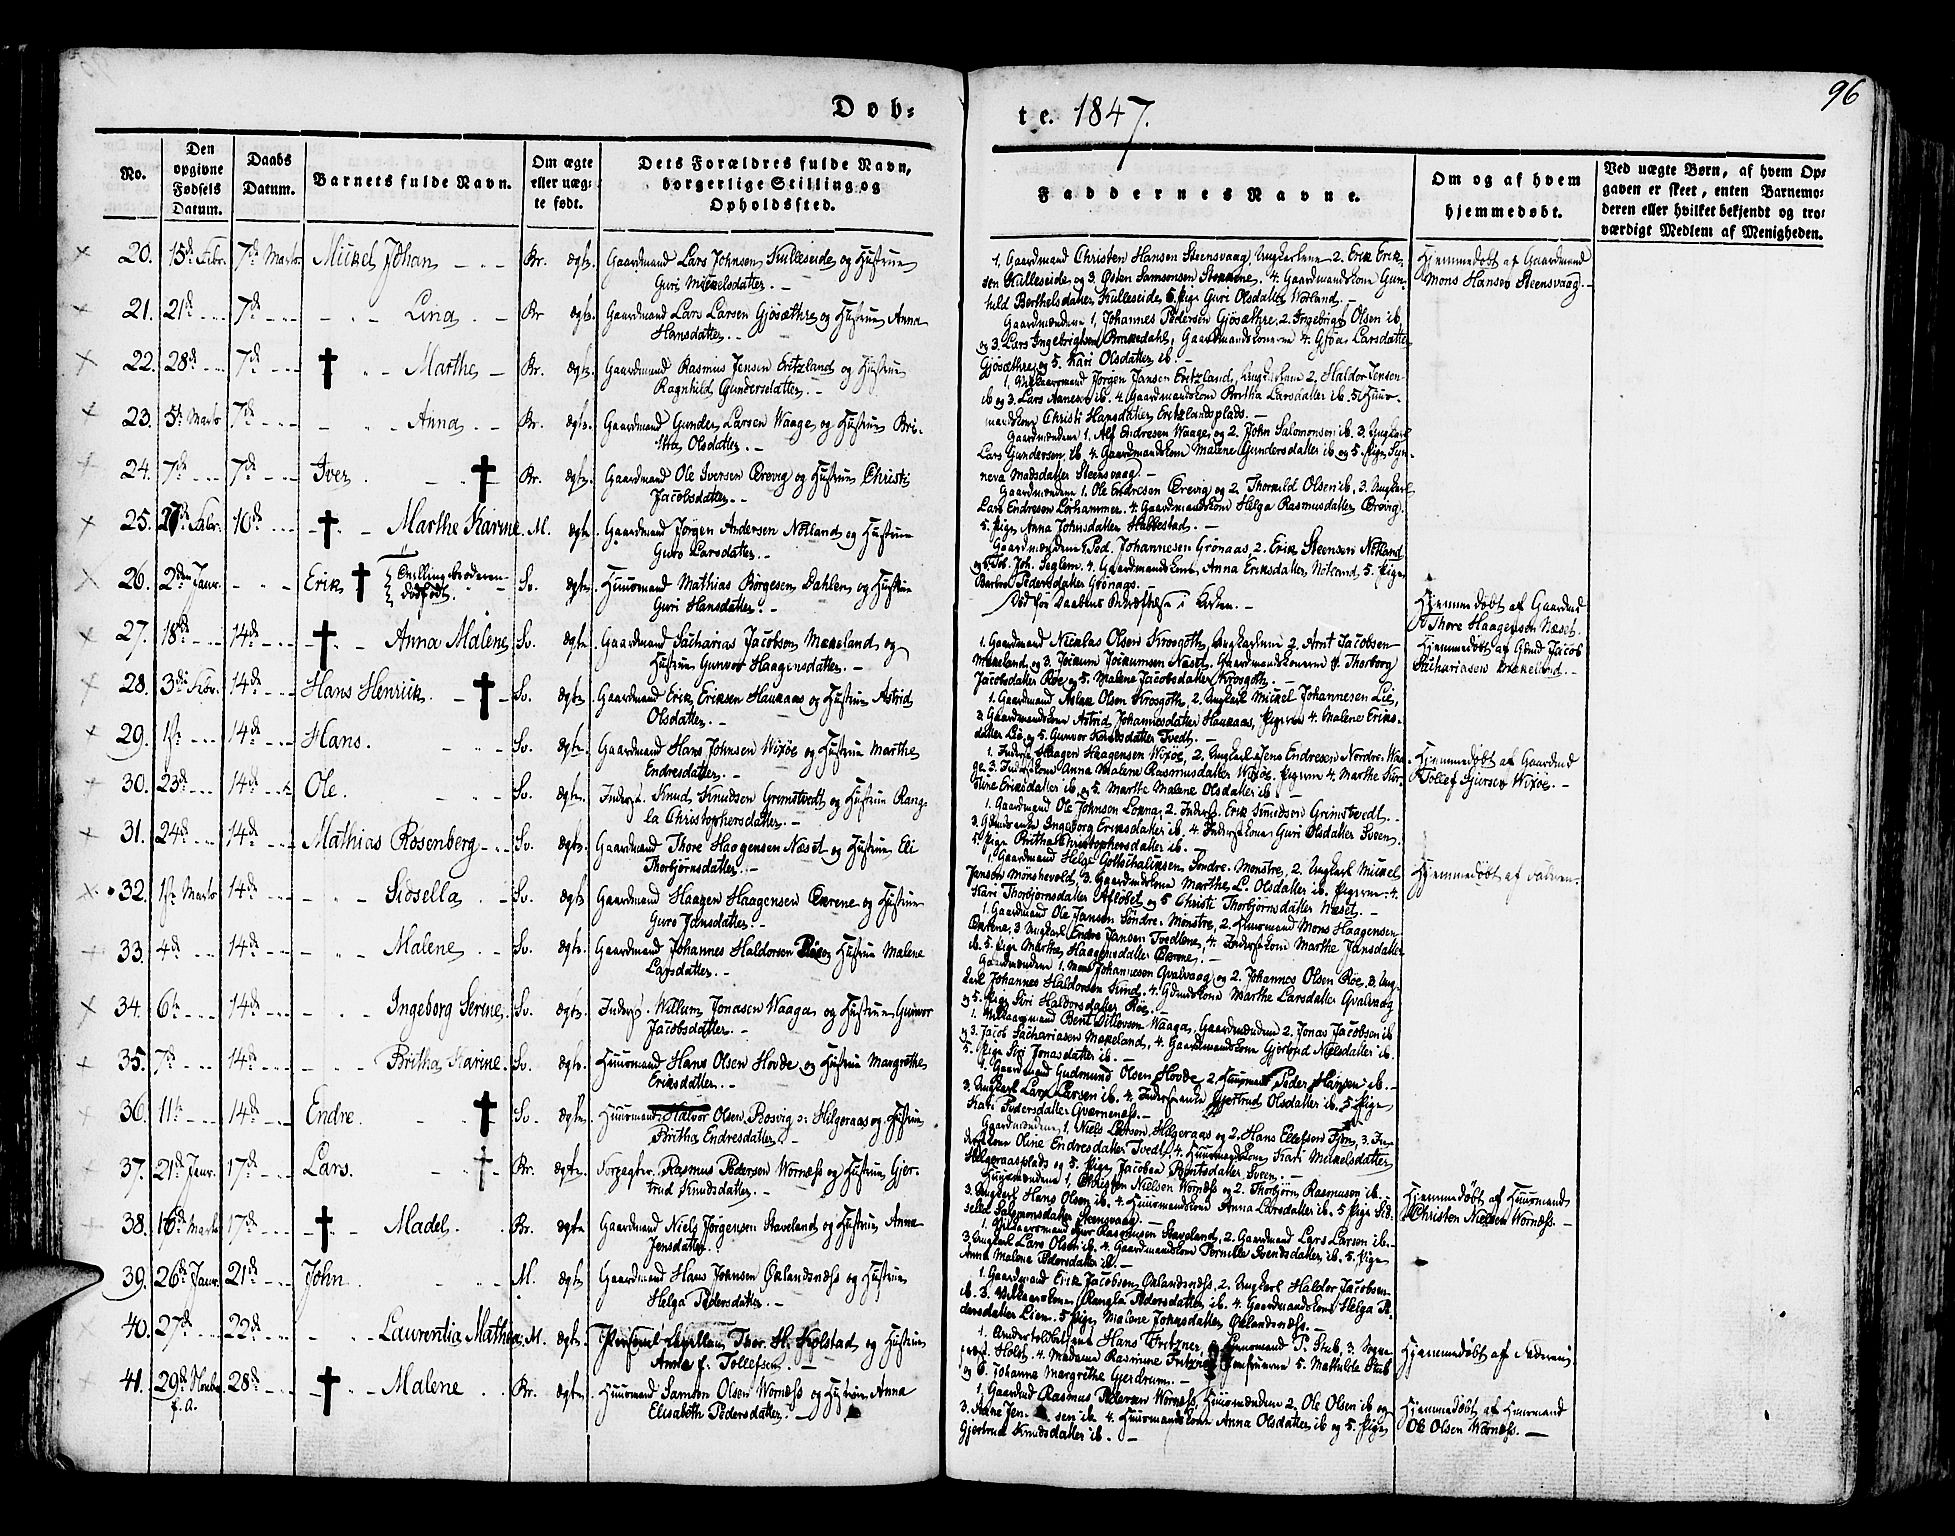 96
Døb-
te. 1847.
No.
Den opgivne Fødsels Datum.
Daabs Datum.
Barnets fulde Navn.
Om ægte eller uægte født.
Dets Forældres fulde Navn, borgerlige Stilling og Opholdsted.
Faddernes Navne.
Om og af hvem hjemmedøbt.
Ved uægte Børn, af hvem Opgaven er skeet, enten Barnemoderen eller hvilket bekjendt og troværdigt Medlem af Menigheden.
20. 15de Febr. 7de Marts Mickel Johan Br. ægte. Gaardmand Lars Johnsen Kulleseide og Hustrue
Guri Mickelsdatter.
1. Gaardmand Christen Hansen Steensvaag, Ungkarlene 2. Erik Erik-
sen Kulleseide og 3. Østen Samsonsen Stokkene, 4. Gaardmandskone Gun-
hild Berthelsdatter Kulleseide, 5. Pige Guri Olsdatter
Hjemmedøbt af Gaardmand
Mons Hansen Steensvaag.
21. 21de 7de Lina Br. ægte. Gaardmand Lars Larsen Gjøsæthre og Hustrue Anna
Hansdatter.
Gaardmændene 1. Johannes Pedersen Gjøsæthre, 2. Ingebrigt Olsen ib.
og 3. Lars Ingebrigtsen Brakedahl, Gaardmandskonerne 4. Larsdatter
Gjøsæthre og 5. Kari Olsdatter ib.
22. 28de 7de Marthe Br. ægte. Gaardmand Rasmus Jensen Eritzland og Hustrue
Ragnhild Gundersdatter.
1. Jørgen Jansen Eritzland, 2. Haldor Jensen
ib og 3. Lars ib. 4. Gaardmandskone Britha Larsdatter ib. 5. Huus-
mandskone Christi Hansdatter Eritzlandsplads.
23. 5te Marts 7de Anna Br. ægte. Gaardmand Gunder Larsen Waage og Hustrue Bri-
tha Olsdatter.
Gaardmændene 1. Alf Endresen Waage, og 2. John Salomonsen ib. 3. Ungkarl
Lars Gundersen ib. 4. Gaardmandskone Malene Gundersdatter ib og 5. Pige Syn-
neva Madsdatter Steensvaag.
24. 7de 7de Iver Br. ægte. Gaardmand Ole Iversen Ørevig og Hustrue Christi
Jacobsdatter.
Gaardmændene 1. Ole Endresen Ørevig og 2. Thorkild Olsen ib, 3. Ungkarl
Lars Endresen 4. Gaardmandskone Helga Rasmusdatter Ørevig
5. Pige Anna Johnsdatter Habbestad.
25. 27de Febr. 10de Marthe Karine M. ægte. Gaardmand Jørgen Andersen Nøtland og Hustrue
Guro Larsdatter.
Gaardmændene 1. Ped. Johannesen Grønaas, 2. Erik Steensen Nøtland
4. Gaardmandskone Anna Eriksdatter 5. Pige
Barbro Pedersdatter Grønaas.
26. 2den Janr. Erik Tvillingbroderen
dødfødt. Sv. ægte. Huusmand Mathias Børgesen Dahlen og Hustrue
Guri Hansdatter.
Død før Daabens Bekræftelse i Kirken.
Hjemmedøbt af Gaardmd
Thore Haagensen Næset.
27. 18de 14de Anna Malene Sv. ægte. Gaardmand Sacharias Jacobsen Mækeland og
Hustrue Gunvor Haagensdatter.
1. Gaardmand Nicolas Olsen Krosgoth, Ungkarlene 2. Arnt Jacobsen
Mækeland og 3. Jockum Jockumsen Næset. Gaardmandskonerne 4. Thorborg
Jacobsdatter Røe og 5. Malene Jacobsdatter Krosgoth.
Hjemmedøbt af Gmd Jacob
Sachariasen Mækeland.
28. 3de Febr. 14de Hans Henrick Sv. ægte. Gaardmand Erik Eriksen Haukaas og Hustrue Astrid
Olsdatter.
1. Gaardmand Aslak Olsen Krosgoth, 2. Ungkarl Mickel Johannesen Lie,
3. Gaardmandskone Astrid Johannesdatter Haukaas, Pigerne 4. Malene Eriks-
datter Lie og 5. Gunvor Knudsdatter Tvedt.
29. 14de Hans. Sv. ægte. Gaardmand Hans Johnsen Wixøe og Hustrue Marthe
Endresdatter.
1. Inderst Haagen Haagensen Wixøe, 2. Ungkarl Jens Endresen Nordre Waa-
ge. 3. Inderstkone Anna Malene Rasmusdatter Wixøe. Pigerne 4. Marthe Kar-
Oline Eriksdatter ib. og 5. Marthe Malene Olsdatter ib.
Hjemmedøbt af Gaardmd
Tollef Wixøe.
30. 23de 14de Ole. Sv. ægte. Inderst Knud Knudsen Grimstvedt og Hustrue Rang-
la Christophersdatter.
1. Gaardmand Ole Johnsen Lokna, 2. Inderst Erik Knudsen Grimstvedt.
3. Ingeborg Eriksdatter ib. 4. Inderstkone Guri Olsdatter Sveen,
5. Pige Britha Christophersdatter ib.
31. 24de 14de Mathias Rosenberg Sv. ægte. Gaardmand Thore Haagensen Næset og Hustrue Eli
Thorbjørnsdatter.
1. Gaardmand Helge Gottschalksen Søndre Mønstre, 2. Ungkarl Mickel
Jansen Mønshevold, 3. Gaardmandskone Marthe L. Olsdatter ib. Pigerne 4.
Kari Thorbjørnsdatter Afløbet og 5 Christi Thorbjørnsdatter Næset.
Hjemmedøbt af Faderen.
32. Marts 14de Sissella Sv. ægte. Gaardmand Haagen Haagensen Økrene og Hustrue
Guro Jansdatter.
1. Gaardmand Ole Jansen Søndre Mønstre, 2. Huusmand Mons Haagensen
Økrene, 3 Ungkarl Endre Jansen Tvedtene, 4. Inderstkone Marthe Jansdatter
ib. 5. Pige Marthe Haagensdatter Økrene.
33. 4de 14de Malene Sv. ægte. Gaardmand Johannes Haldorsen Røe og Hustrue Malene
Larsdatter.
Gaardmændene 1. Mons Johannesen Qvalvaag og 2. Johannes Olsen Røe, 3. Ung-
karl Johannes Haldorsen Sund, 4. Gdmdskone Marthe Larsdatter Qvalvaag
og 5. Pige Siri Haldorsdatter Røe.
34. 6te 14de Ingeborg Serine Sv. ægte. Inderst Willum Jonasen Waage og Hustrue Gunvor
Jacobsdatter.
1. Bent Ditlevsen Waage, Gaardmændene 2. Jonas Jacobsen ib
og 3. Jacob Sachariasen Mækeland, 4. Gaardmandskone Gjertrud Nielsdatter ib.
5. Pige Siri Jonasdatter ib.
35. 7de 14de Britha Karine Sv. ægte. Huusmand Hans Olsen Hovde og Hustrue Margrethe
Eriksdatter.
1. Gaardmand Gudmund Olsen Hovde, 2. Huusmand Peder Hansen ib.
3. Ungkarl Lars Larsen ib. 4. Gjertrud Olsdatter ib. 5. Pige
Kari Pedersdatter Qvernenæss.
36. 11te 14de Endre Sv. ægte. Huusmand Halvor Olsen Røsvig Helgeraas og Hustrue
Britha Endresdatter.
Gaardmændene 1. Niels Larsen Helgeraas og 2. Hans Ellefsen 3. In-
derstkone Oline Endresdatter Tvedt, 4. Huusmandskone Kari Mickelsdatter
Helgeraasplads og 5. Pige Jacobea Bentsdatter Sveen.
37. 21de Janr. 17de Lars. Br. ægte. Rasmus Pedersen Wornæss og Hustrue Gjer-
trud Knudsdatter.
Huusmændene 1. Christen Nielsen Wornæss og 2. Thorbjørn Rasmusen ib.
3. Ungkarl Hans Olsen ib. 4. Huusmandskone Anna Larsdatter ib. 5 Pige Sid-
sella Salomonsdatter Steensvaag.
Hjemmedøbt af Huusmand
Christen Nielsen Wornæss.
38. 16de Marts 17de Madel. Br. ægte. Gaardmand Niels Jørgensen Staveland og Hustrue Anna
Jensdatter.
1. Rasmusen Staveland, 2. Gaardmand Lars Larsen ib.
3. Ungkarl Lars Olsen ib. 4. Gaardmandskone Pernille Svendsdatter ib. 5. Pige
Anna Malene Pedersdatter ib.
39. 26de Janr. 21de John. M. ægte. Gaardmand Hans Johnsen Øklandsnæss og Hustrue
Helga Pedersdatter.
1. Gaardmand Erik Jacobsen Øklandsnæss, 2. Ungkarl Haldor Jacobsen
ib. 3. Rangla Pedersdatter ib. 4. Gaardmandskone Helga Pe-
dersdatter Lien. 5 Pige Malene Johnsdatter Øklandsnæss.
40. 27de 22de Laurentia Mathea M. ægte. Thor. H. Holstad og Hustrue
Anna f. Tollefsen.
1. Hans Fritzner, 2. P. Stub, 3.
Holst, 4. Madame Rasmine Fritzner, Jomfruerne 5. Mathilde Stub
og 6. Johanna Margrethe Gjerdrum.
Hjemmedøbt af
41. 29de Novbr f. A. 28de Malene Br. ægte. Huusmand Samson Olsen Wornæss og Hustrue Anna
Elisabeth Pedersdatter.
1. Gaardmd Rasmus Pedersen Wornæss, Huusmændene 2. Ole Olsen ib og
3. Aane Jensen ib 4. Huusmandskone Anna Olsdatter ib og 5. Pige
Gjertrud Knudsdatter ib.
Hjemmedøbt af Huusmand
Ole Olsen Wornæss.